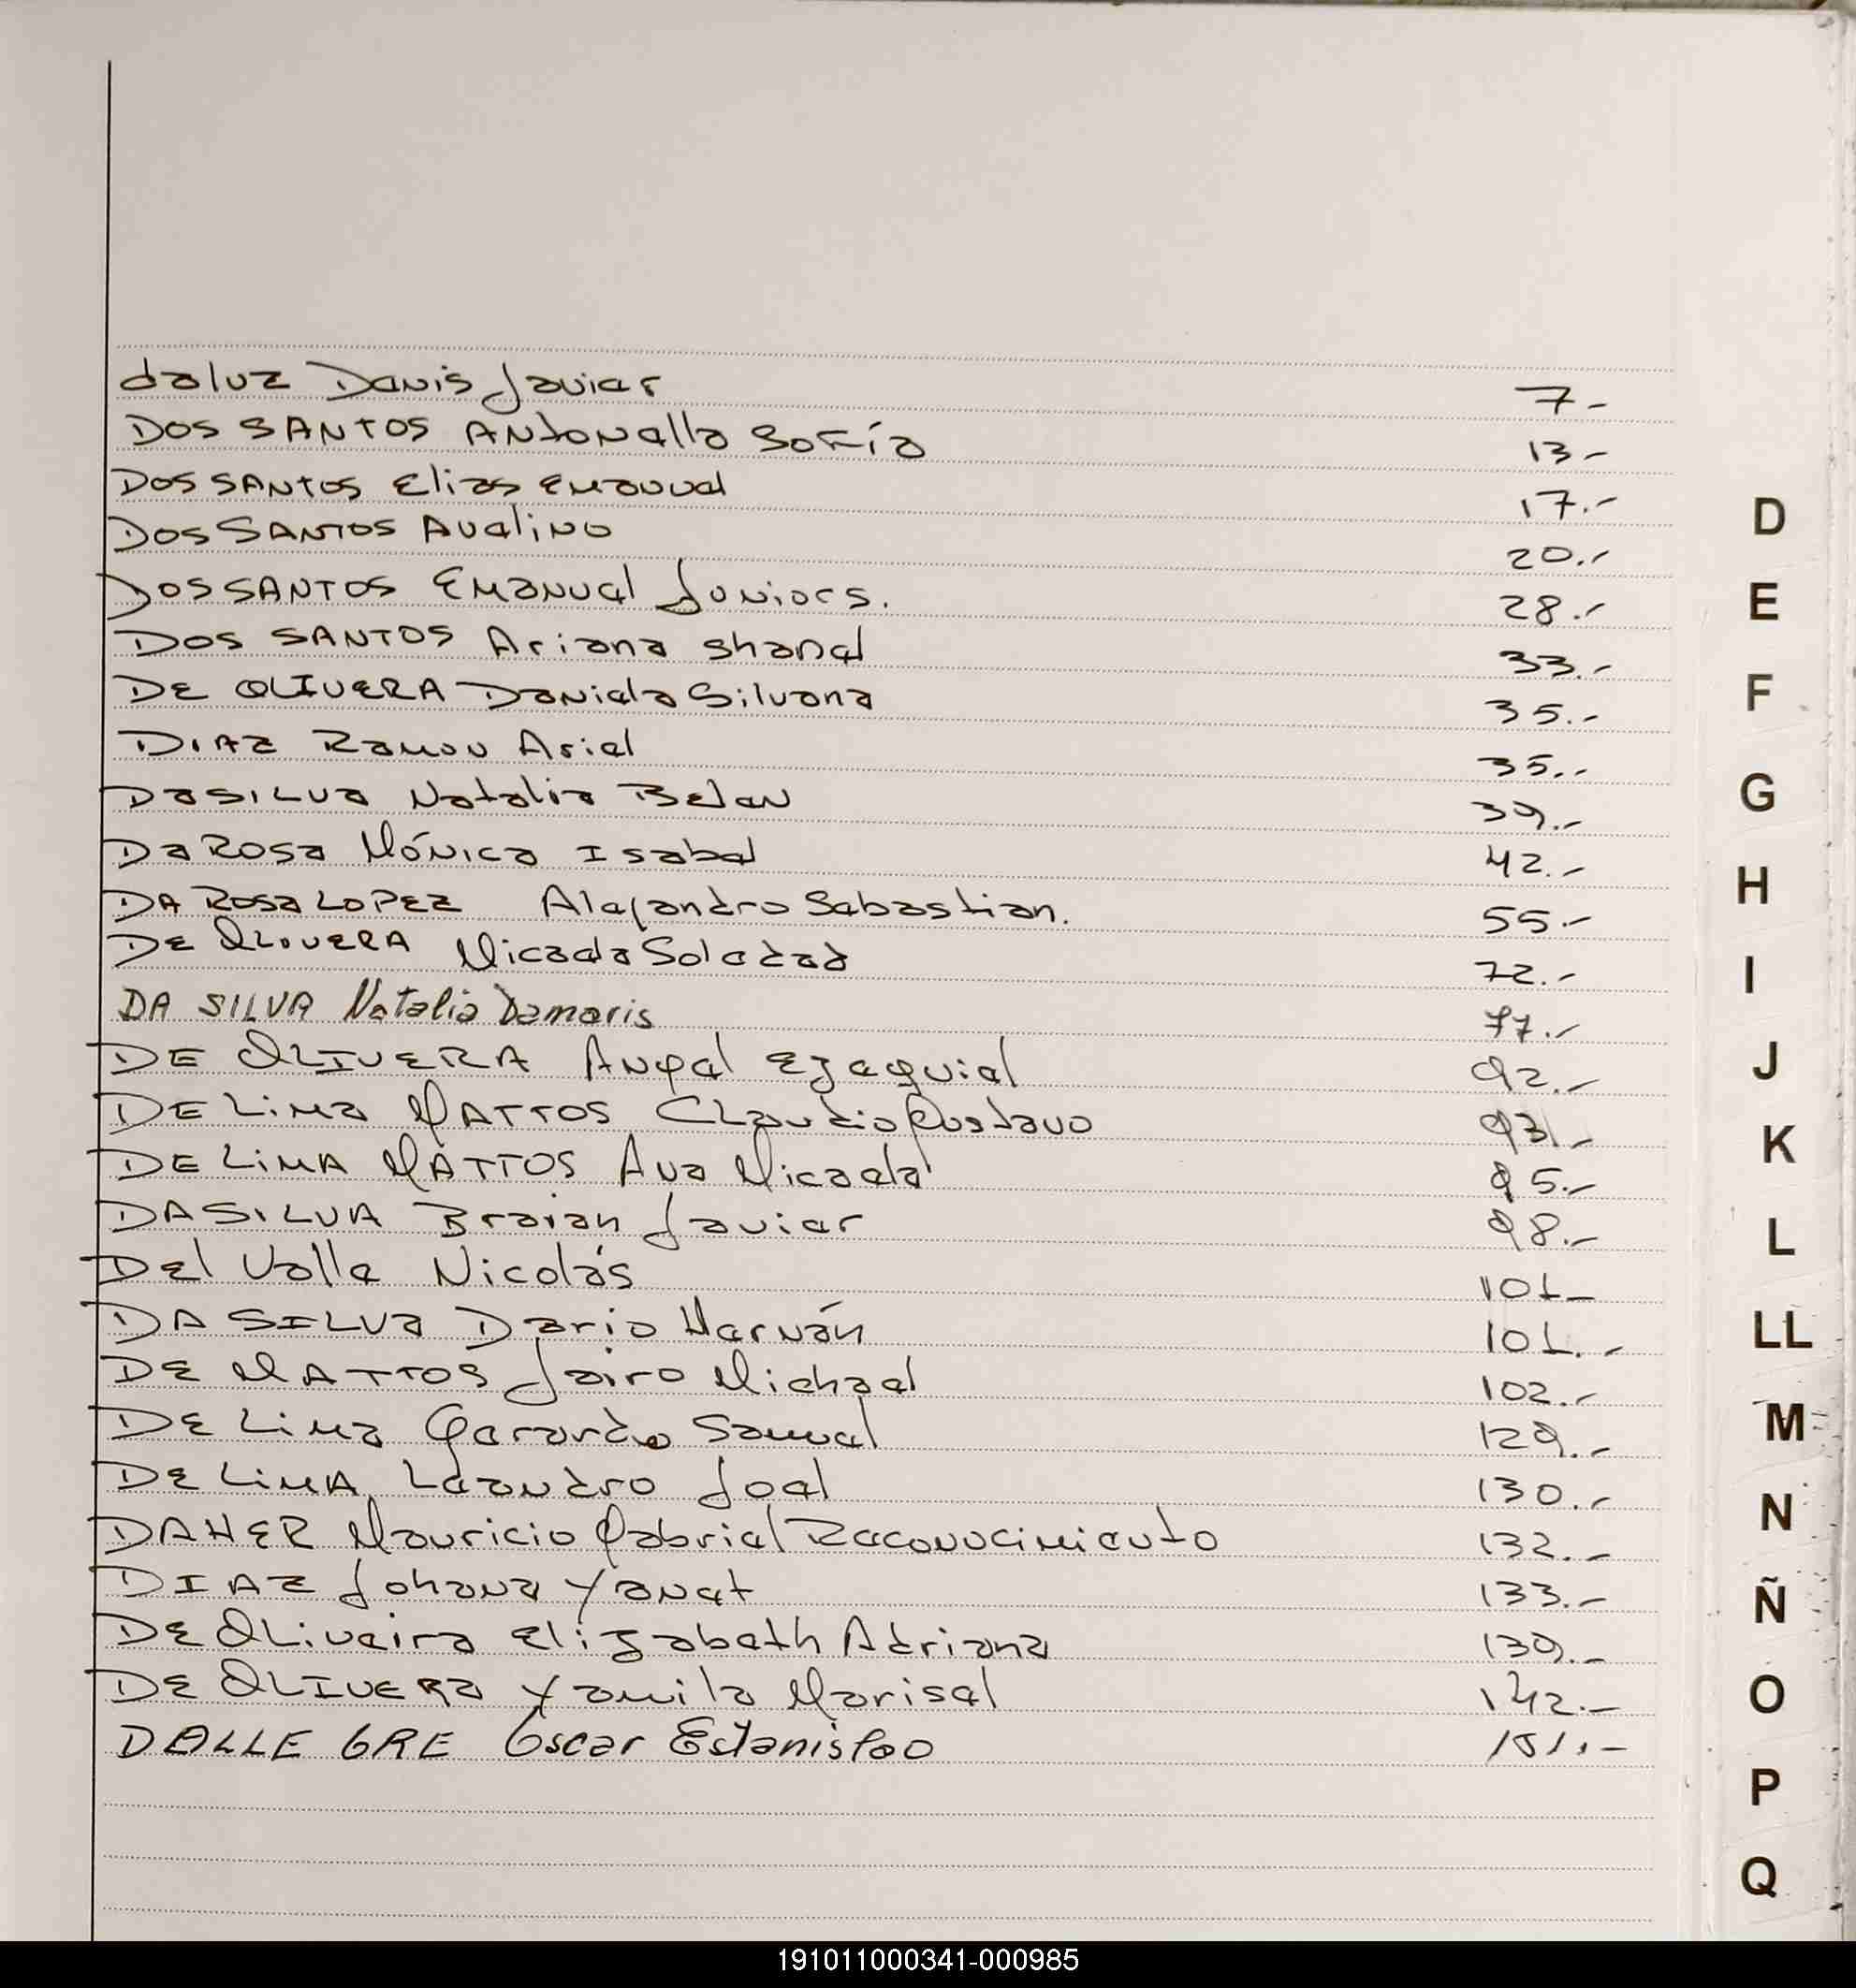 daluz Denis Javier 7-
DOS SANTOS Antonella Sofía 13-
DOS SANTOS Elias Emanuel 17.-
DOS SANTOS Avelino 20.-
DOS SANTOS Emanuel Juniors. 28.-
DOS SANTOS Ariana Shanel 33.-
DE OLIVERA Daniela Silvana 35.-
DIAZ Ramon Ariel 35.-
DaSILVA Natalia Belen 39.-
Da ROSA Mónica Isabel 42.-
DA ROSA LOPEZ Alejandro Sebastian. 55.-
DE OLIVERA Micaela Soledad 72.-
DA SILVA Natalia Damaris 77.-
DE OLIVERA Angel Ezequiel 92.-
DE Lima MATTOS Claudio Gustavo 93.-
DE LIMA MATTOS Ana Micaela 95.-
DA SILVA Braian Javier 98.-
Del Valle Nicolás 101-
DA SILVA Dario Hernán 101.-
DE MATTOS Jairo Michael 102.-
DE Lima Gerardo Samuel 129.-
DE LIMA Leandro Joel 130.-
DAHER Mauricio Gabriel Reconocimiento 132.-
DIAZ Johana Yanet 133.-
DE OLiveira Elizabeth Adriana 139.-
DE OLIVERA Yamila Marisel 142.-
DALLE GRE Oscar Estanislao 151.-
D
E
F
G
H
I
J
K
L
LL
M
N
Ñ
O
P
Q
191011000341-000985